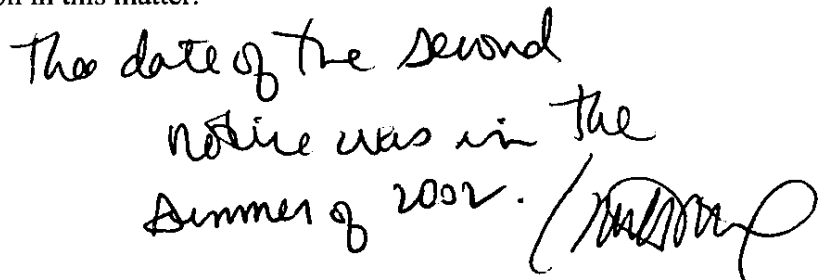 on in this matter.
The date of the second
notice was in the
summer of 2002.